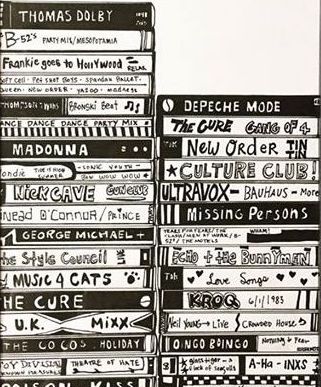 THOMAS DOLBY
B-52's PARTY MIX/MESOPOTAMIA
Frankie goes to Hollywood RELAX
SOFT CELL - PET SHOP BOYS - SPANDAU BALLET -
QUEEN - NEW ORDER - YAZOO - madness
THOMPSON TWINS Bronski Beat
ANCE DANCE DANCE PARTY MIX
MADONNA
ondie TIDE IS HIGH SONIC YOUTH -
BOW WOW WOW
NICK CAVE GUN CLUB
inead O'CONNOR / PRINCE
GEORGE MICHAEL +
the Style Council LIVE
MUSIC 4 CATS
THE CURE
U.K. MiXX
THE GO GOS. HOLIDAY
OY DIVISION THEATRE OF HATE
POISON KISS
DEPECHE MODE
THE CURE GANG OF 4
New Order TIN TIN
CULTURE CLUB!
ULTRAVOX - BAUHAUS - More
Missing Persons
TEARS FOR FEARS/THE
CLASH/MEN AT WORK/B-
52's/THE MOTELS
WHAM!
ECHO + the BUNNYMEN
TDK Love Songs
KROQ 6/1/1983
Neil Young → LIVE CROWDED HOUSE
OINGO BOINGO
glass tiger →
flock of seagulls
A-Ha - INXS